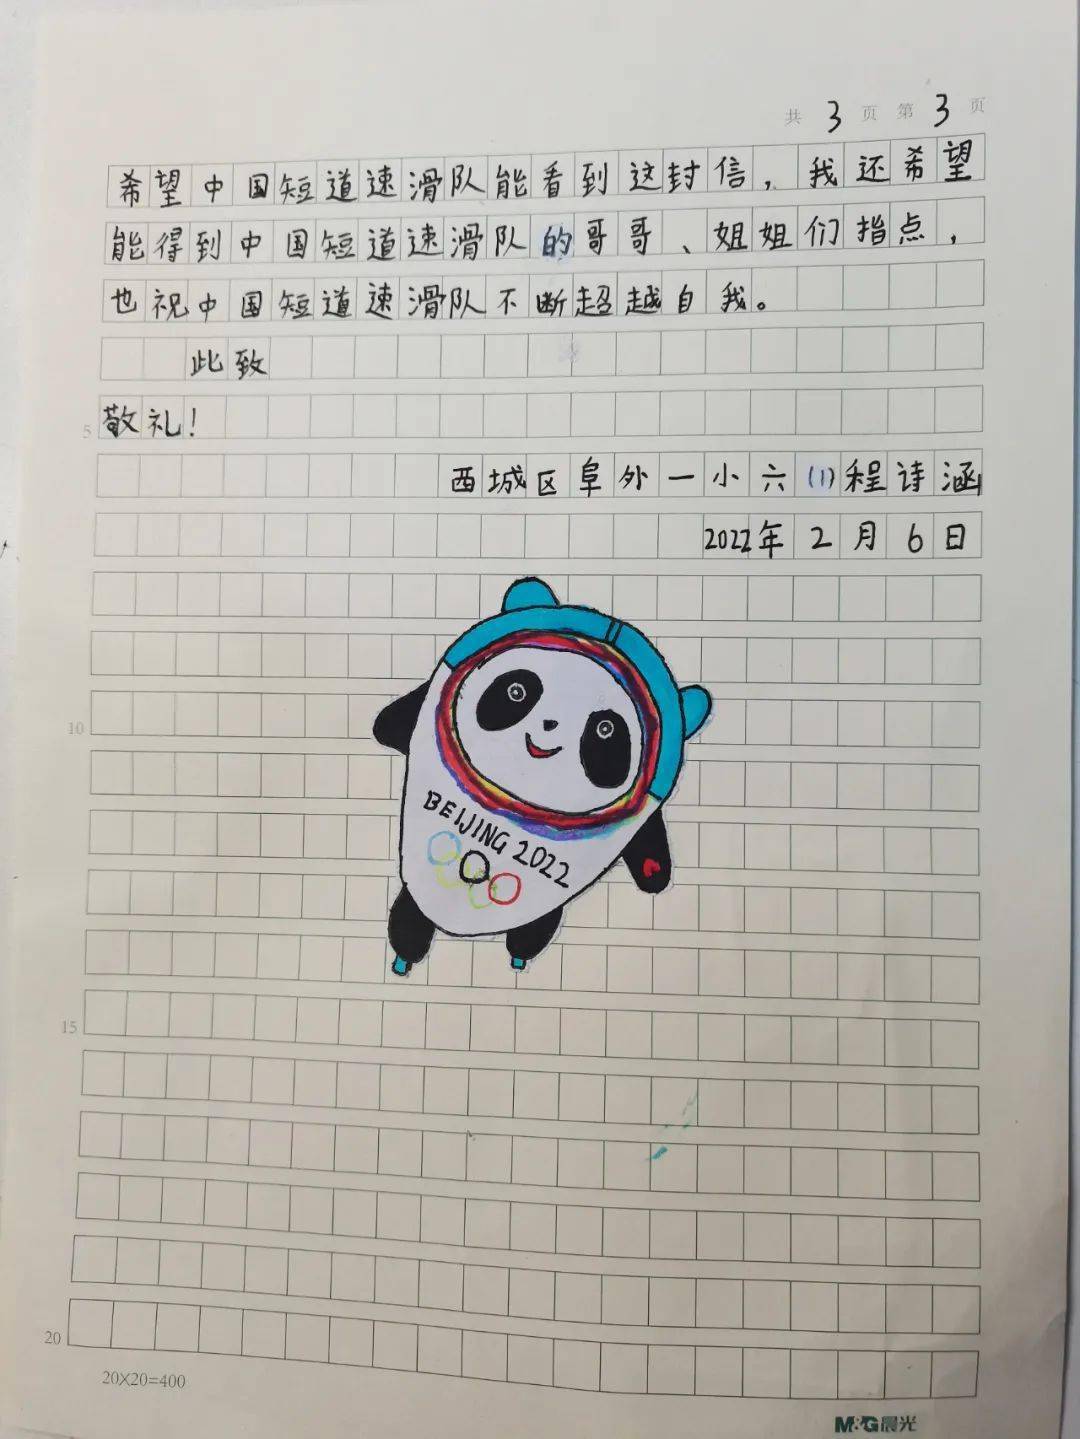 共 3 页 第 3 页
希望中国短道速滑队能看到这封信，我还希望
能得到中国短道速滑队的哥哥、姐姐们指点，
也祝中国短道速滑队不断超越自我。
此致
5
敬礼！
西城区阜外一小六(1)程诗涵
2022年2月6日
10
BEIJING 2022
15
20
20×20=400
M&G晨光